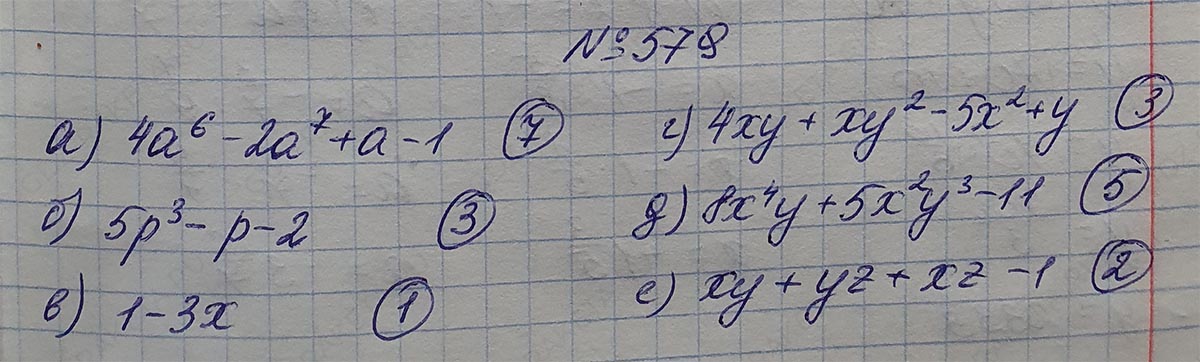 №578
а) 4a⁶ - 2a⁷ + a - 1 ⑦
б) 5p³ - p - 2 ③
в) 1 - 3x ①
г) 4xy + xy² - 5x² + y ③
д) 8x⁴y + 5x²y³ - 11 ⑤
е) xy + yz + xz - 1 ②